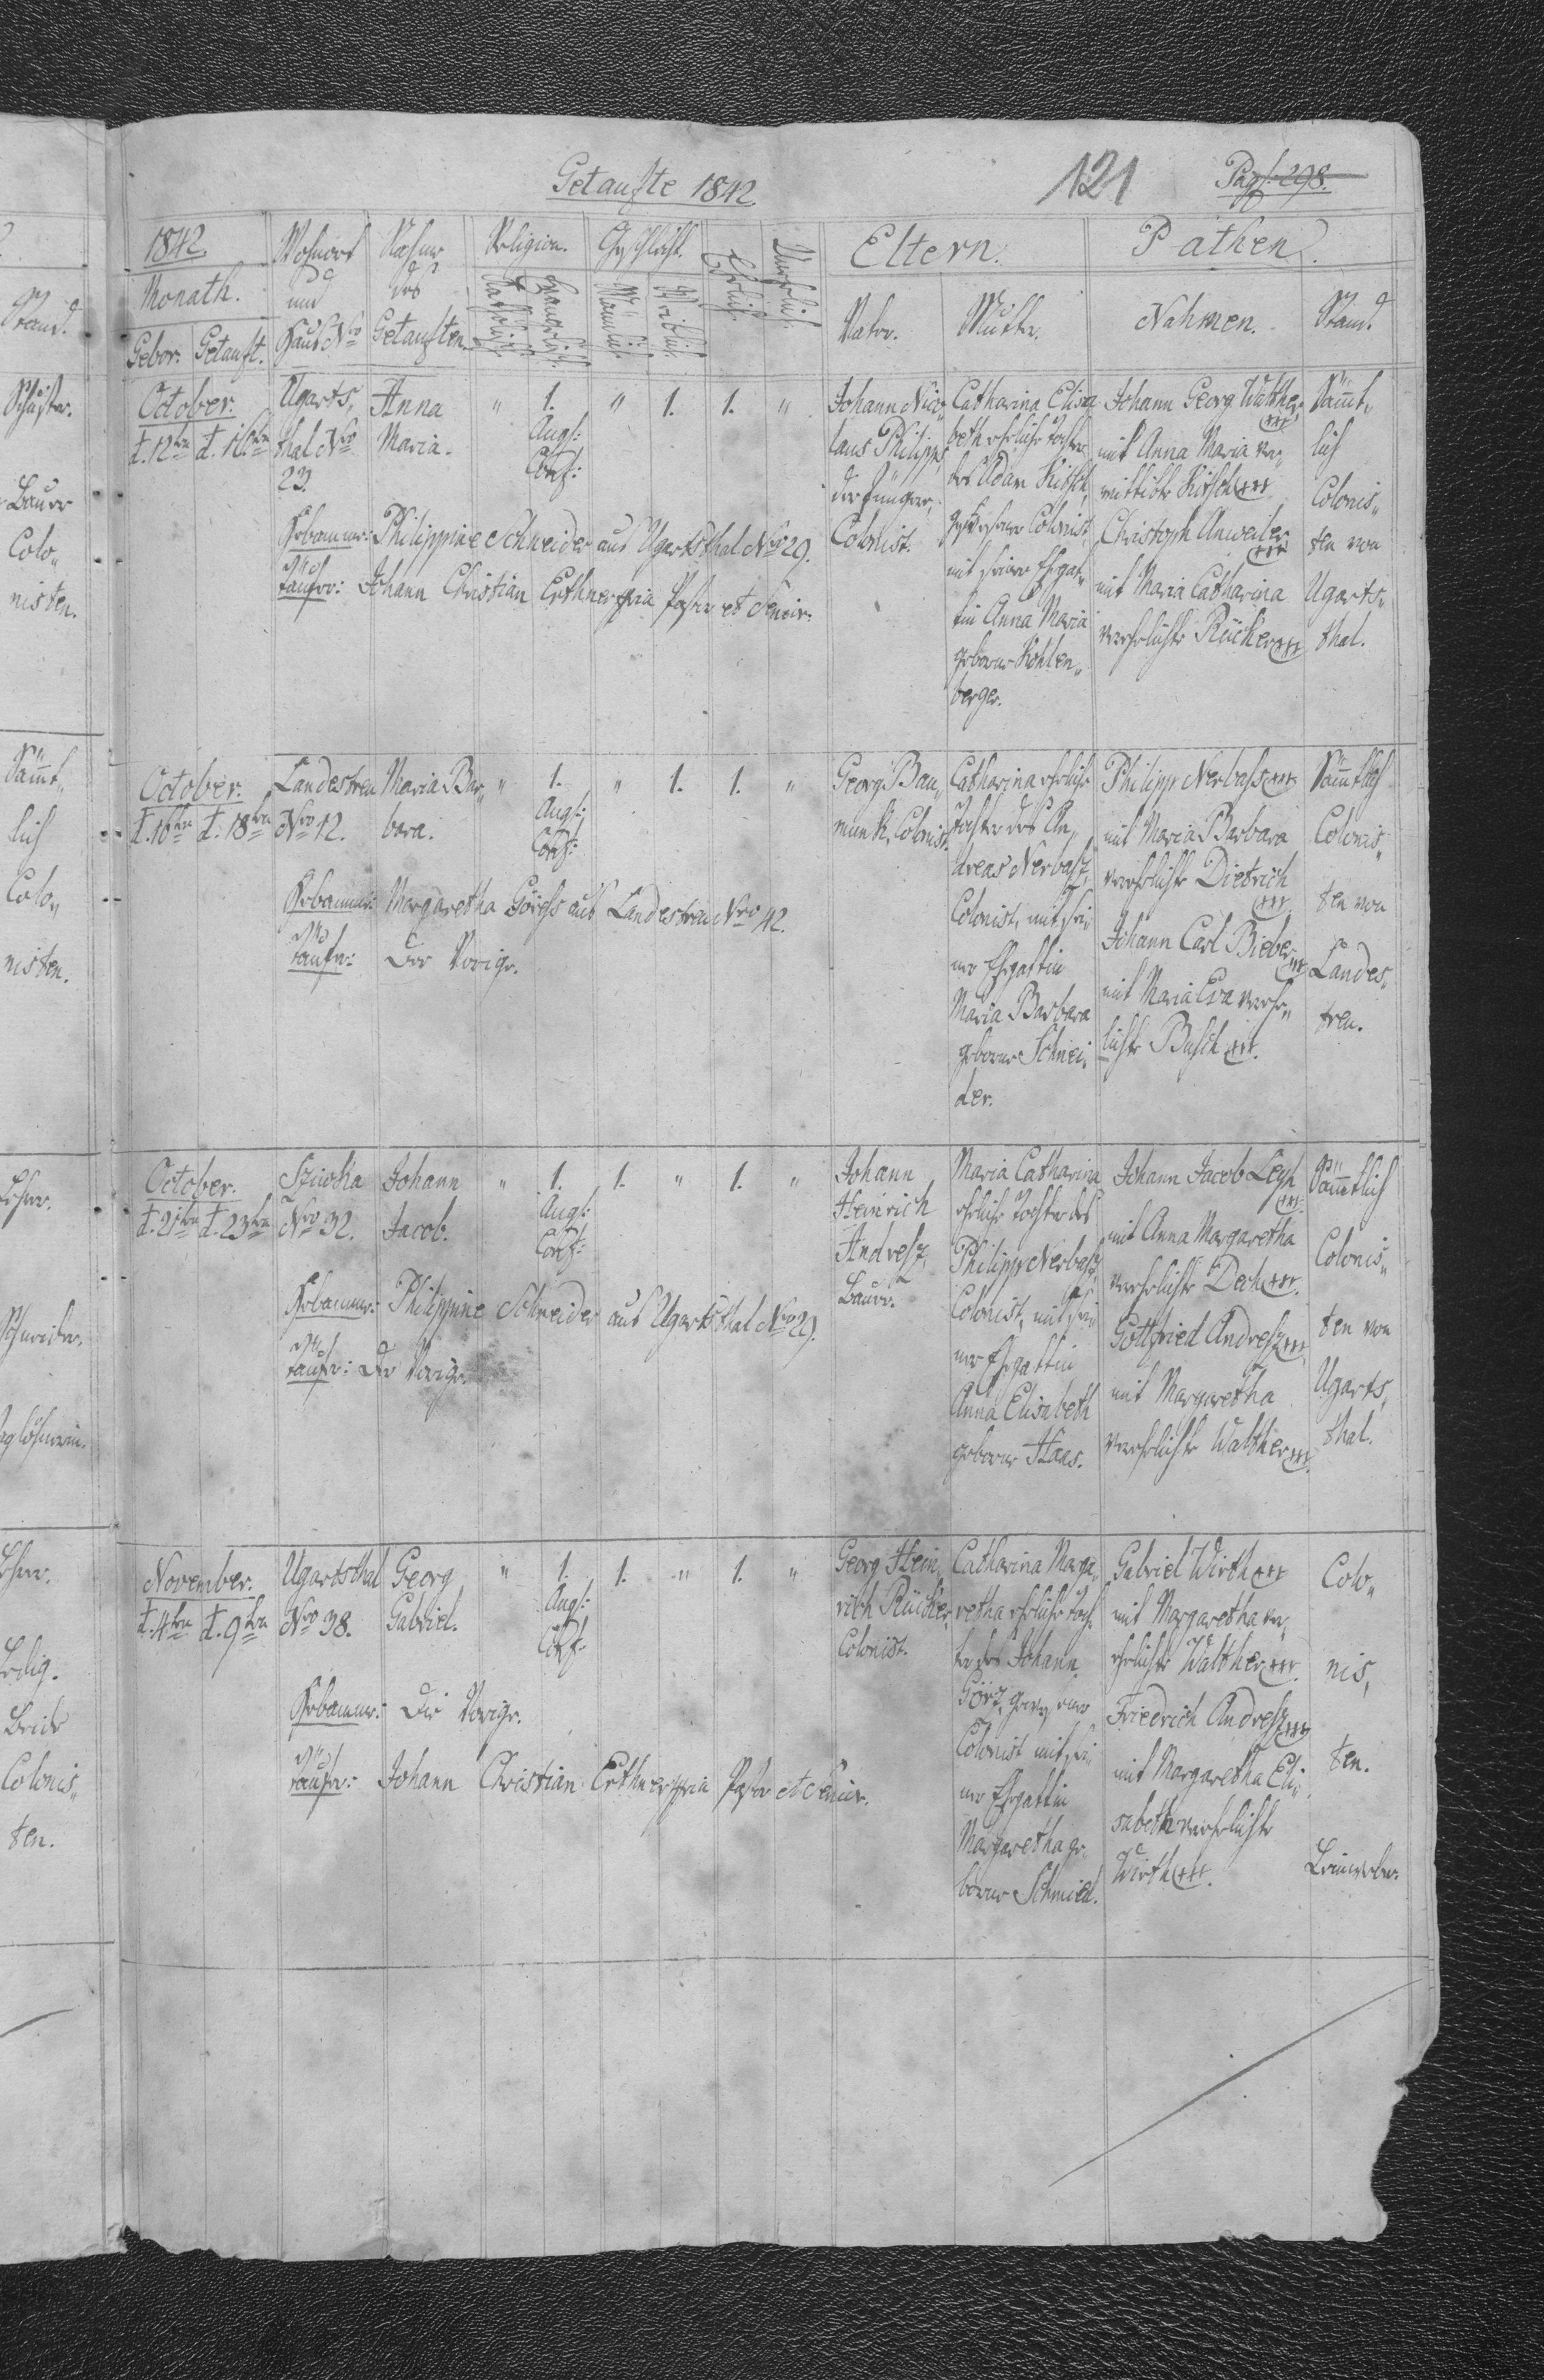 Getaufte 1842.
121
Pag: 298.
1842
Monath.
Gebor: Getauft.
Wohnort
und
Haus Nro
Nahme
des
Getauften.
Religion.
Katholisch.
Evangelisch.
Geschlecht.
Männlich.
Weiblich.
Ehelich.
Unehelich.
Eltern.
Vater.
Mutter.
Pathen.
Nahmen.
Stand.
October.
d. 12ten d. 16ten
Ugarts„
thal Nro
23.
Anna
Maria.
" 1. " 1. 1. "
Augs:
Conf:
Johann Nico„
laus Philipps,
der jüngere,
Colonist.
Catharina Elisa
beth eheliche Tochter
des Adam Kitsch,
gewesener Colonist,
mit seiner Ehegat„
tin Anna Maria
geborne Kohlen„
berger.
Johann Georg Walther
+++
mit Anna Maria ver„
wittibte Kitsch +++
Christoph Anweiler
+++
mit Maria Catharina
verehelichte Rücker +++
Sämt„
lich
Colonis„
ten von
Ugarts„
thal.
Hebamme: Philippine Schneider aus Ugartsthal Nro 29.
Taufer: Johann Christian Erthner mpria Pastor et Senior.
October.
d. 16ten d. 18ten
Landestreu
Nro 12.
Maria Bar„
bara.
" 1. " 1. 1. "
Augs:
Conf:
Georg Bau„
munk, Colonist.
Catharina eheliche
Tochter des An„
dreas Nerbasz,
Colonist, mit sei„
ner Ehegattin
Maria Barbara
geborne Schnei„
der.
Philipp Nerbasz +++
mit Maria Barbara
verehelichte Dietrich
+++
Johann Carl Bieber
+++
mit Maria Eva verehe„
lichte Busch +++.
Sämtlich
Colonis„
ten von
Landes„
treu.
Hebamme: Margaretha Görgss aus Landestreu Nro 42.
Taufer: Der Vorige.
October.
d. 21ten d. 23ten
Szivka
Nro 32.
Johann
Jacob.
" 1. 1. " 1. "
Augs:
Conf:
Johann
Heinrich
Andresz,
Bauer.
Maria Catharina
eheliche Tochter des
Philipp Nerbasz,
Colonist, mit sei„
ner Ehegattin
Anna Elisabeth
geborne Haas.
Johann Jacob Leyh
+++
mit Anna Margaretha
verehelichte Dech +++.
Gottfried Andresz +++
mit Margaretha
verehelichte Walther +++.
Sämtlich
Colonis„
ten von
Ugarts„
thal.
Hebamme: Philippine Schneider aus Ugartsthal Nro 29.
Taufer: Der Vorige.
November.
d. 4ten d. 9ten
Ugartsthal
Nro 38.
Georg
Gabriel.
" 1. 1. " 1. "
Augs:
Conf:
Georg Hein„
rich Rücker,
Colonist.
Catharina Marga„
retha eheliche Toch„
ter des Johann
Görz, gewesener
Colonist mit sei„
ner Ehegattin
Margaretha ge„
borne Schmied.
Gabriel Wirth +++
mit Margaretha ver„
ehelichte Walther +++.
Friedrich Andresz +++
mit Margaretha Eli„
sabeth verehelichte
Wirth +++.
Colo„
nis„
ten.
Leinweber.
Hebamme: Die Vorige.
Taufer: Johann Christian Erthner mpria Pastor et Senior.
Stand.
Schuster.
Bauer
Colo„
nisten.
Sämt„
lich
Colo„
nisten.
Schneider.
Ledig.
Beide
Colonis„
ten.